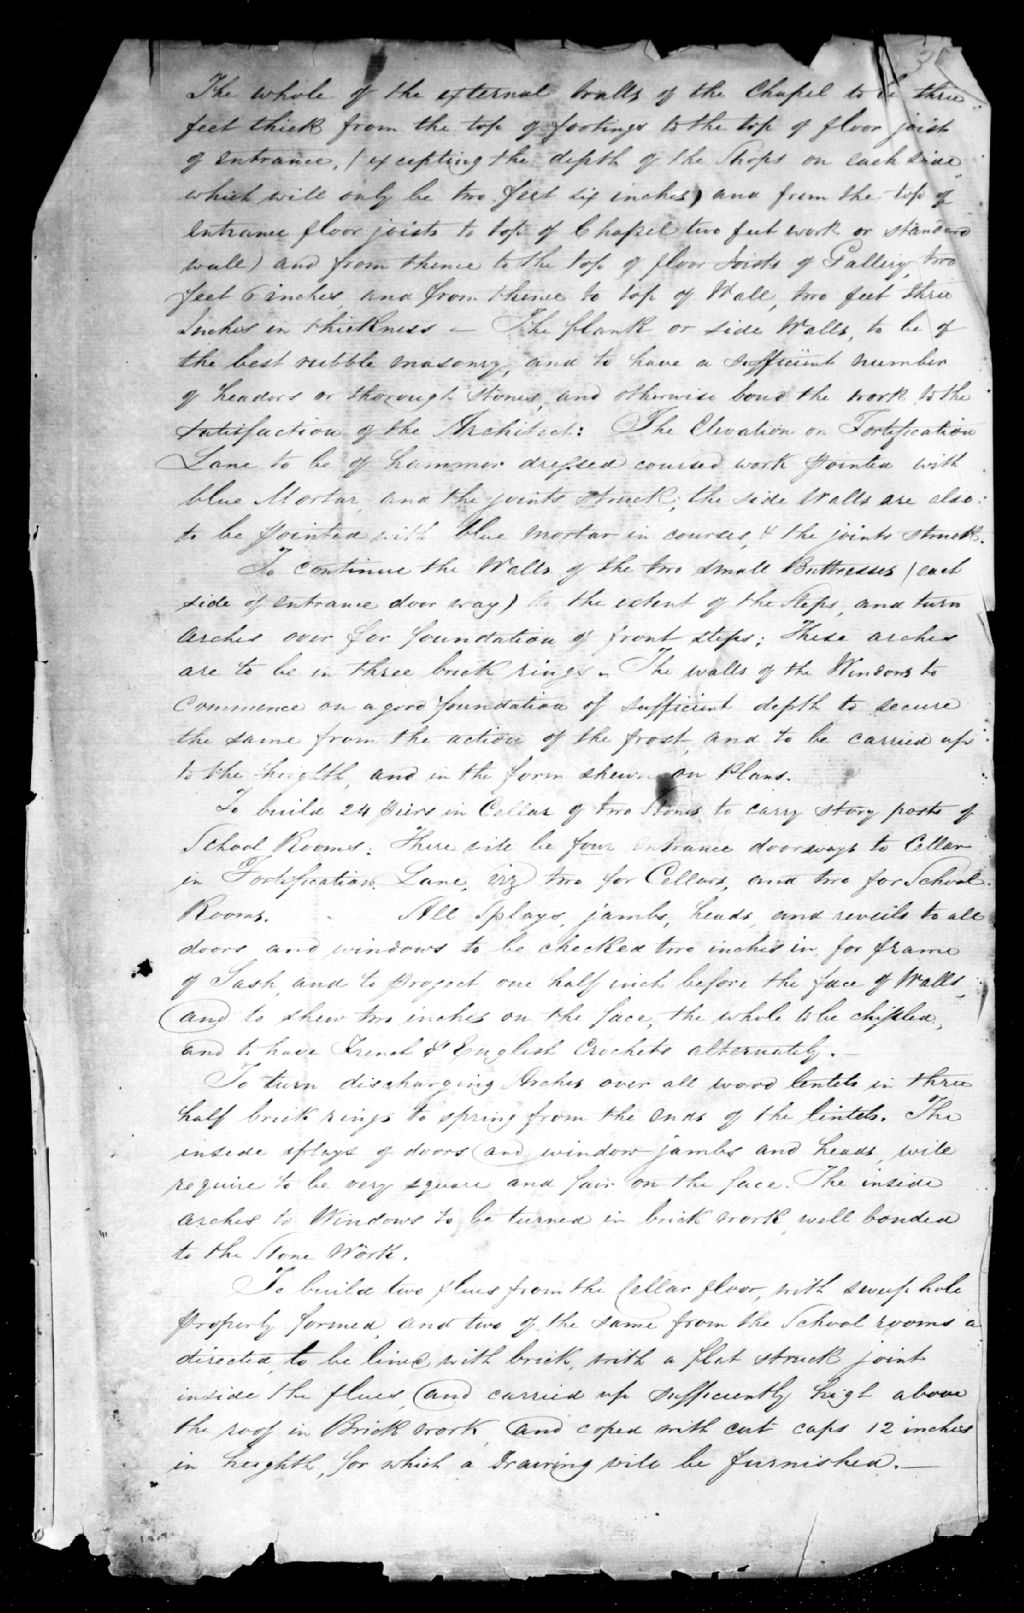 3
The whole of the external walls of the Chapel to be three
feet thick from the top of footings to the top of floor joist
of entrance, (excepting the depth of the Shops on each side
which will only be two feet six inches) and from the top of
entrance floor joists to top of Chapel two feet work or standard
wall) and from thence to the top of floor Joists of Gallery, two
feet 6 inches, and from thence to top of Wall, two feet three
Inches in thickness – The flank or side Walls, to be of
the best rubble masonry, and to have a sufficient number
of headors or thorough Stones, and otherwise bond the work to the
satisfaction of the Architect: The Elevation on Fortification
Lane to be of hammer dressed coursed work pointed with
blue Mortar, and the joints struck; the side Walls are also
to be pointed with blue mortar in courses, & the joints struck.
To continue the Walls of the two small Buttresses (each
side of entrance door way) to the extent of the steps, and turn
arches over for foundation of front steps; These arches
are to be in three brick rings. The walls of the Windows to
commence on a good foundation of sufficient depth to secure
the same from the action of the frost, and to be carried up
to the heighth, and in the form shewn on Plans.
To build 24 piers in Cellar of two Stones to carry story posts of
School Rooms. There will be four entrance doorways to Cellar
in Fortification Lane, viz) two for Cellars, and two for School
Rooms. All Splays, jambs, heads, and reveils to all
doors and windows to be checked two inches in, for frame
of Sash, and to project one half inch before the face of Walls,
and to shew two inches on the face, the whole to be chisled,
and to have French & English Crockets alternately. –
To turn discharging Arches over all wood lentels in three
half brick rings to spring from the ends of the lintels. The
inside splays of doors and window jambs and heads, will
require to be very square and fair on the face. The inside
arches to Windows to be turned in brick work, well bonded
to the Stone Work.
To build two flues from the Cellar floor, with sweep hole
properly formed, and two of the same from the School rooms a
directed, to be lined with brick, with a flat struck joint
inside the flues, and carried up sufficiently high above
the roof in Brick work, and coped with cut caps 12 inches
in heighth, for which a Drawing will be furnished. –